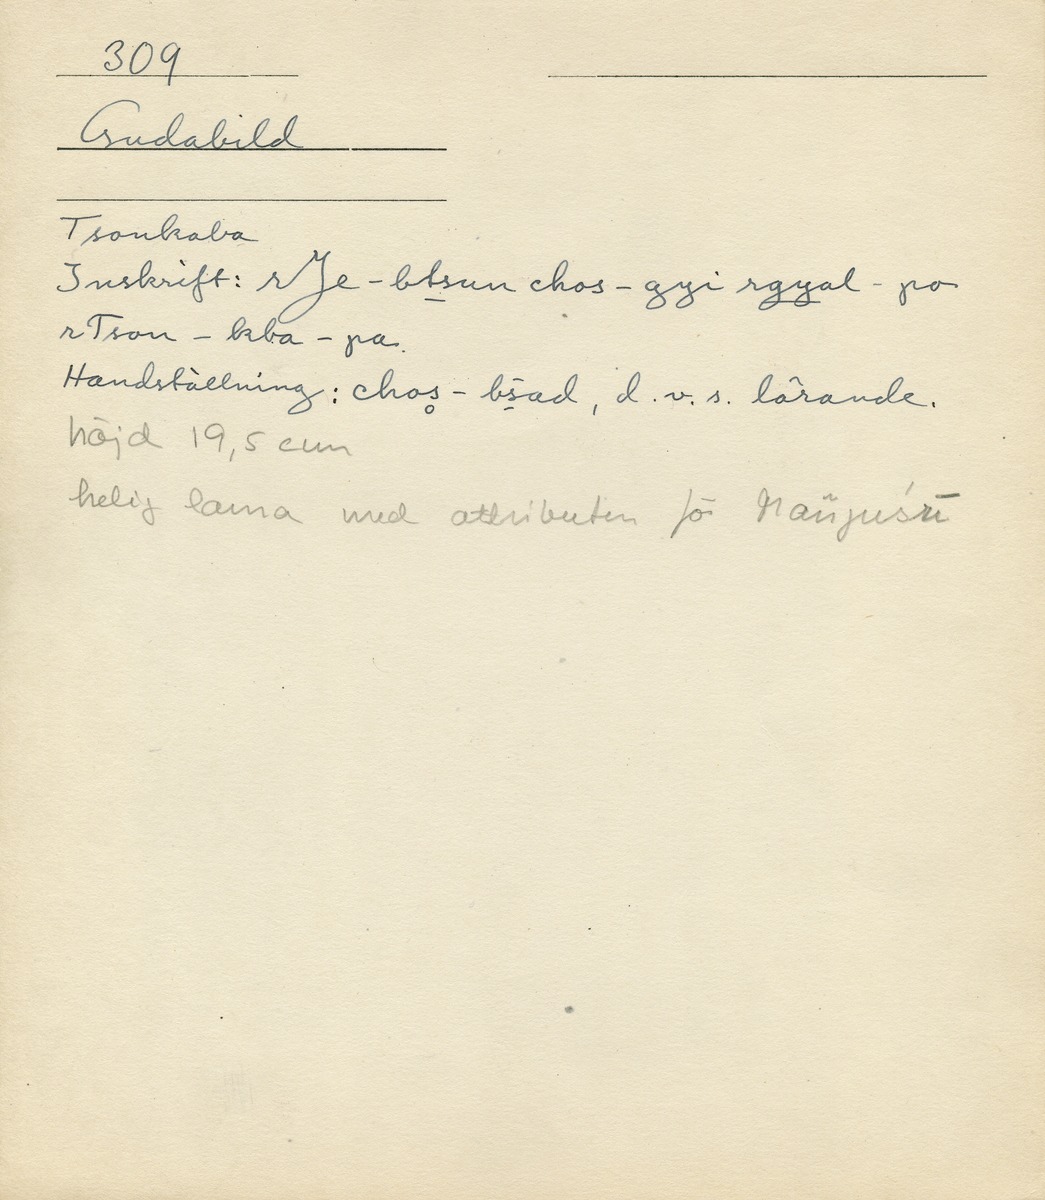 309
Gudabild
Tsonkaba
Inskrift: rJe-bt̲sun chos-gyi rg̲y̲al-po
rTson-kba-pa.
Handställning: chos̥-bś̱ad, d.v.s. lärande.
höjd 19,5 cm
helig lama med attributen för Mañjuśrī